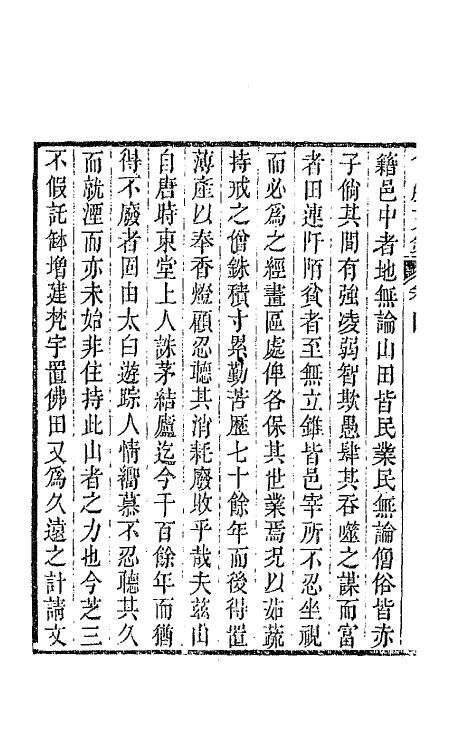 籍邑中者地無論山田皆民業民無論僧俗皆赤
子倘其間有強凌弱智欺愚肆其吞噬之謀而富
者田連阡陌貧者至無立錐皆邑宰所不忍坐視
而必為之經畫區處俾各保其世業焉況以茹蔬
持戒之僧銖積寸累勤苦歷七十餘年而後得置
薄產以奉香燈顧忍聽其消耗廢敗乎哉夫茲山
自唐時東堂上人誅茅結廬迄今千百餘年而猶
得不廢者固由太白遊踪人情嚮慕不忍聽其久
而就湮而亦未始非住持此山者之力也今芝三
不假託缽增建梵宇置佛田又為久遠之計請文